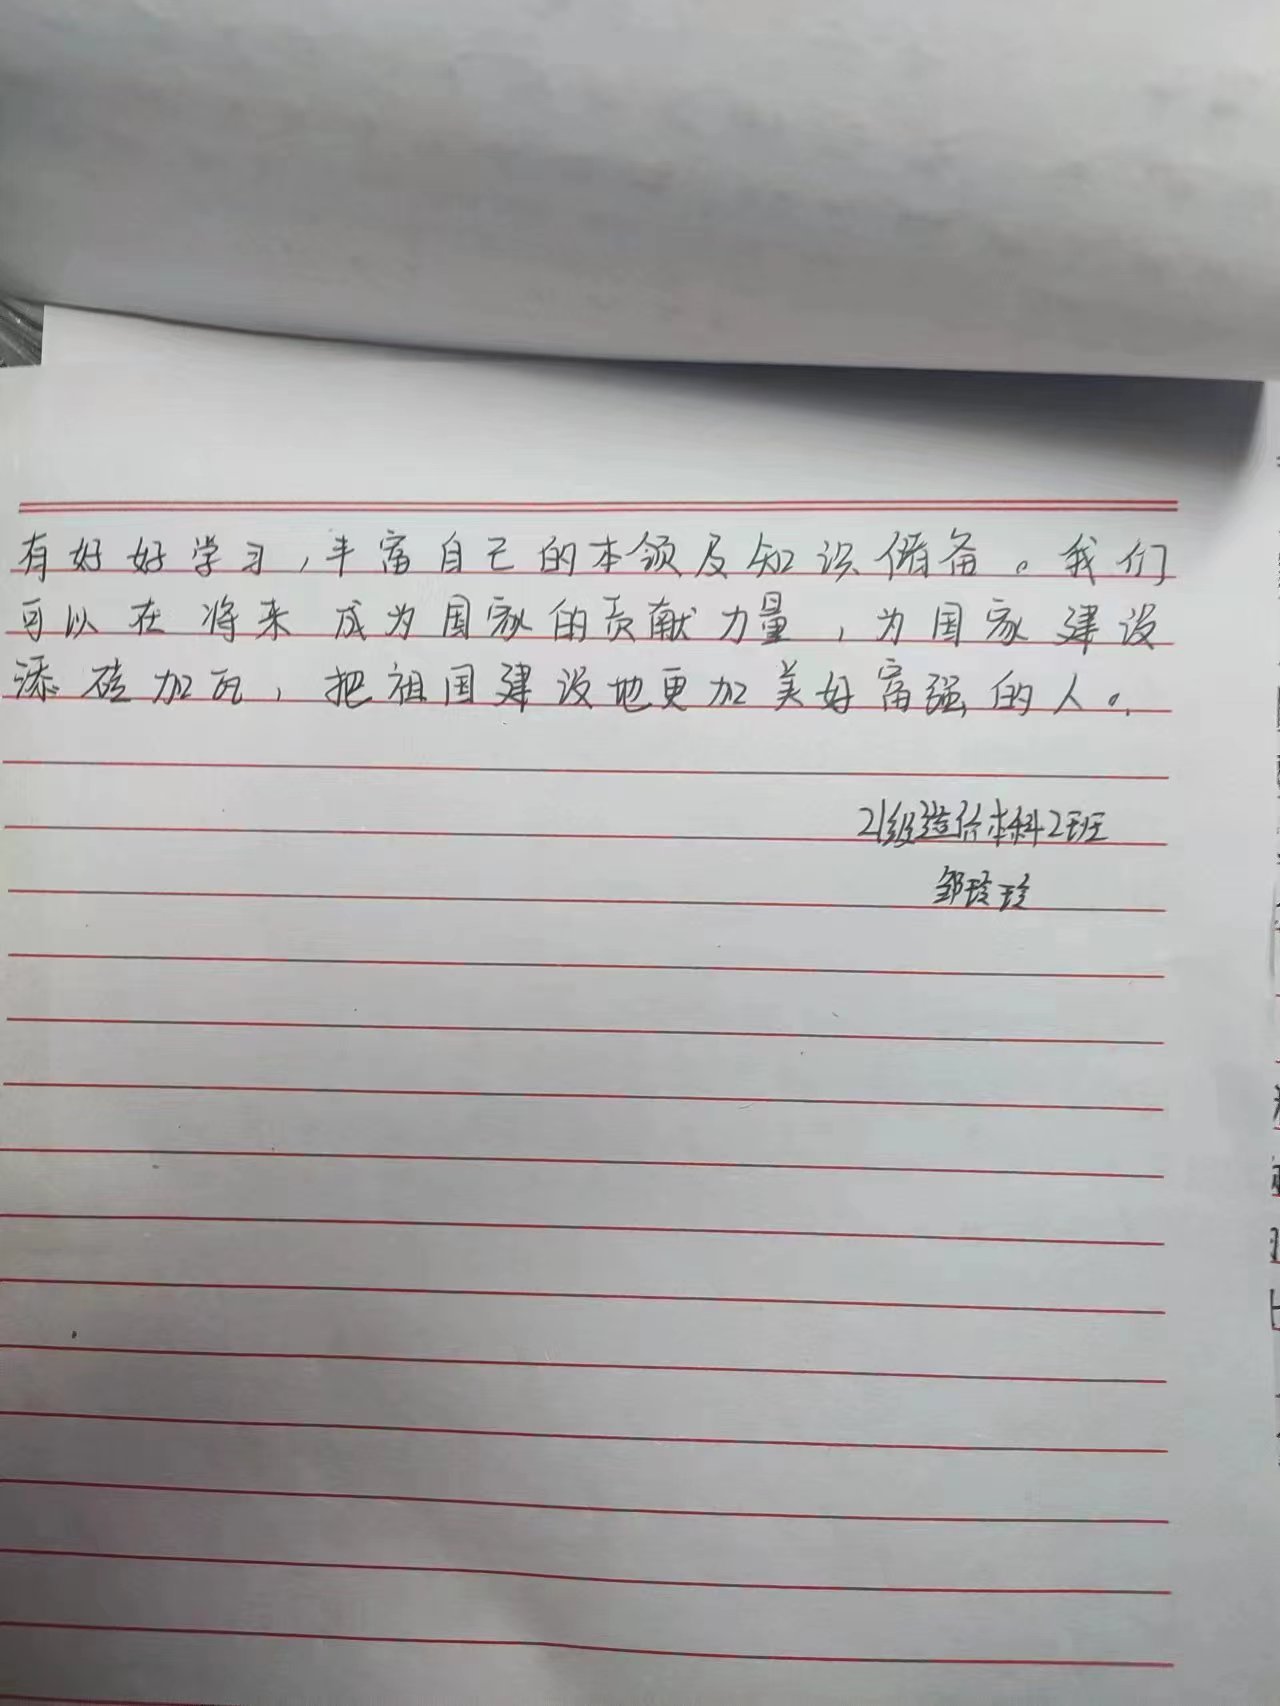 有好好学习，丰富自己的本领及知识储备。我们
可以在将来成为国家的贡献力量，为国家建设
添砖加瓦，把祖国建设地更加美好富强的人。
21级造价本科2班
邹玲玲